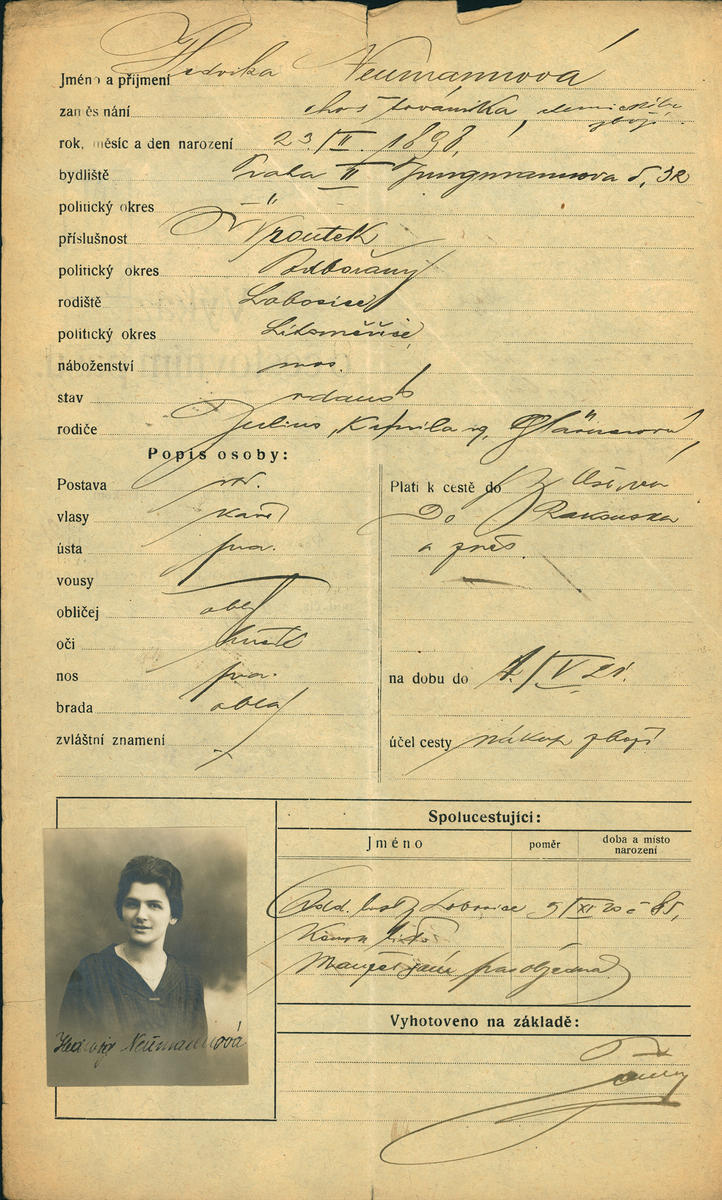 Jméno a přijmení Hedvika Neumannová
zaměstnání choť továrníka, chemického
zboží
rok, měsíc a den narození 23/II. 1898,
bydliště Praha II Jungmannova č. 32
politický okres — " —
příslušnost Vroutek
politický okres Podbořany
rodiště Lobosice
politický okres Litoměřice
náboženství mos.
stav vdaná
rodiče Julius, Kamila r.
Popis osoby:
Postava stř.
vlasy kašt
ústa pra.
vousy —
obličej oblý
oči hnědé
nos pra.
brada oblá
zvláštní znamení
Platí k cestě do
Do Rakouska
a zpět.
na dobu do 1/V 21.
účel cesty nákup zboží
Spolucestující:
Jméno poměr doba a místo
narození
Odd. list z Lobosice 5/XI 20 č 85,
Manžel
Vyhotoveno na základě:
Hedwiga Neumannová